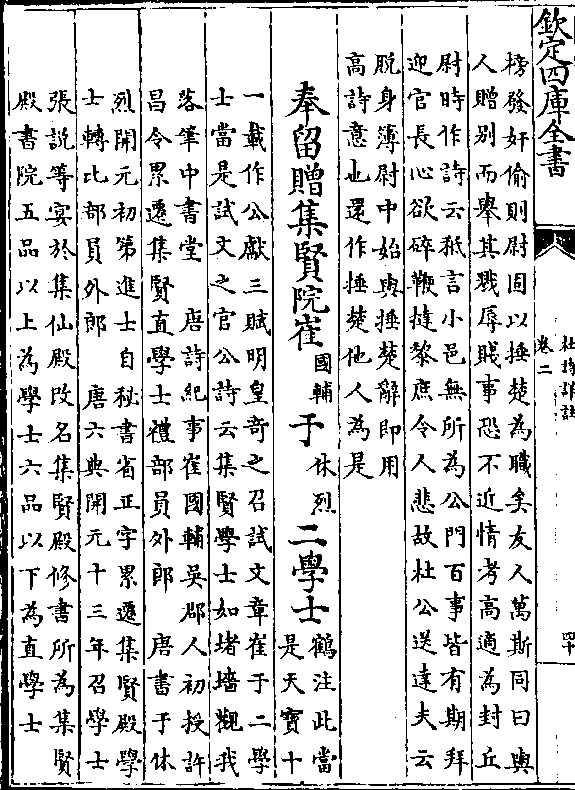 欽定四庫全書
杜詩詳註
卷二
四十
榜發奸偷則尉固以捶楚為職矣友人萬斯同曰與
人贈別而舉其戮辱賤事恐不近情考高適為封丘
尉時作詩云秪言小邑無所為公門百事皆有期拜
迎官長心欲碎鞭撻黎庶令人悲故杜公送達夫云
脱身簿尉中始與捶楚辭即用
高詩意也還作捶楚他人為是
奉留贈集賢院崔國輔于休烈二學士鶴注此當是天寶十
一載作公獻三賦明皇奇之召試文章崔于二學
士當是試文之官公詩云集賢學士如堵墻觀我
落筆中書堂　唐詩紀事崔國輔吳郡人初授許
昌令累遷集賢直學士禮部員外郎　唐書于休
烈開元初第進士自秘書省正字累遷集賢殿學
士轉比部員外郎　唐六典開元十三年召學士
張説等宴於集仙殿改名集賢殿修書所為集賢
殿書院五品以上為學士六品以下為直學士